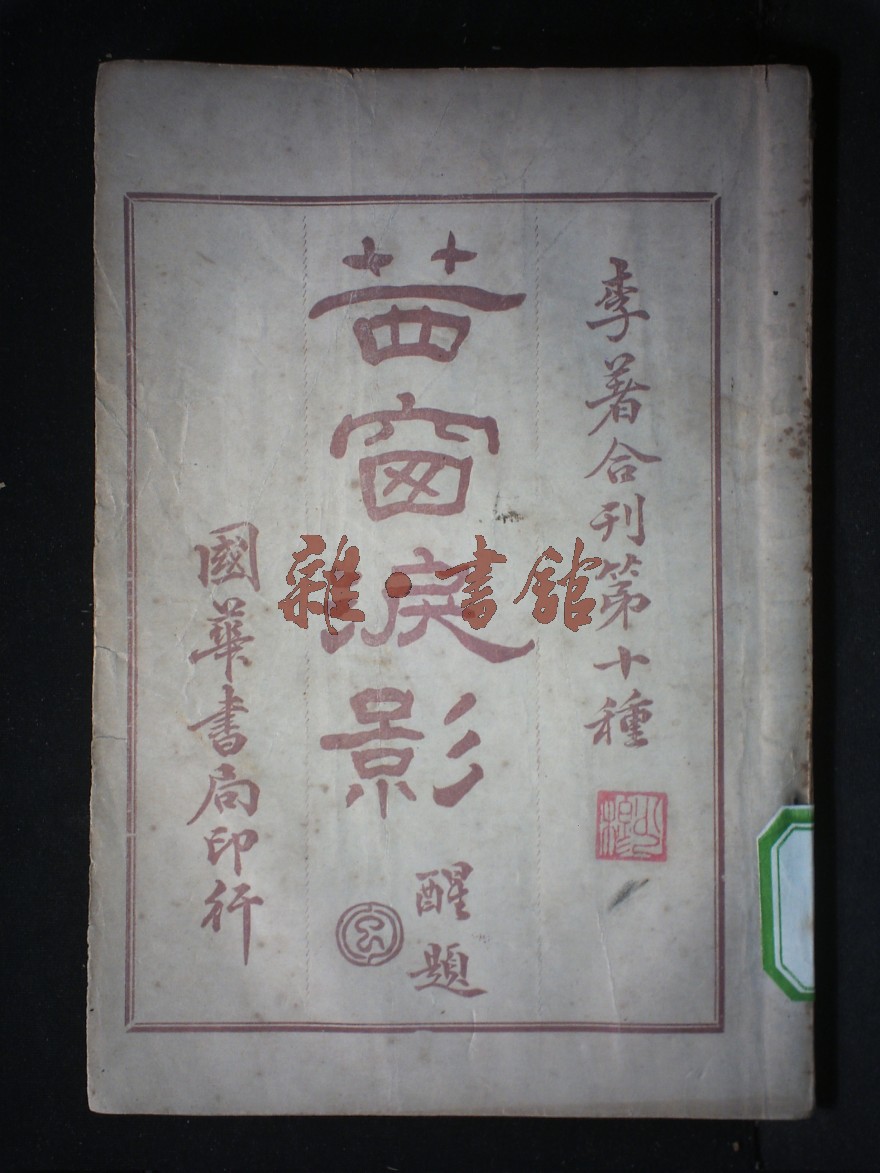 李著合刊第十種
茜窗淚影
醒題
國華書局印行
雜·書館